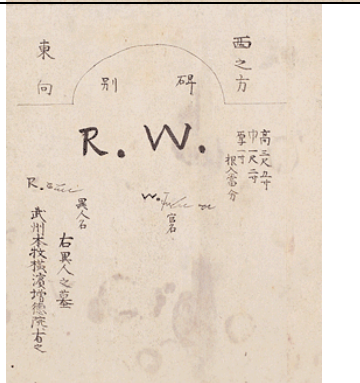 西之方
碑
別
東向
R. W.
高三尺五寸
巾一尺二寸
厚一寸
根入當分
W.
R.
異人
右異人之墓
武州本牧横濱増徳院有之